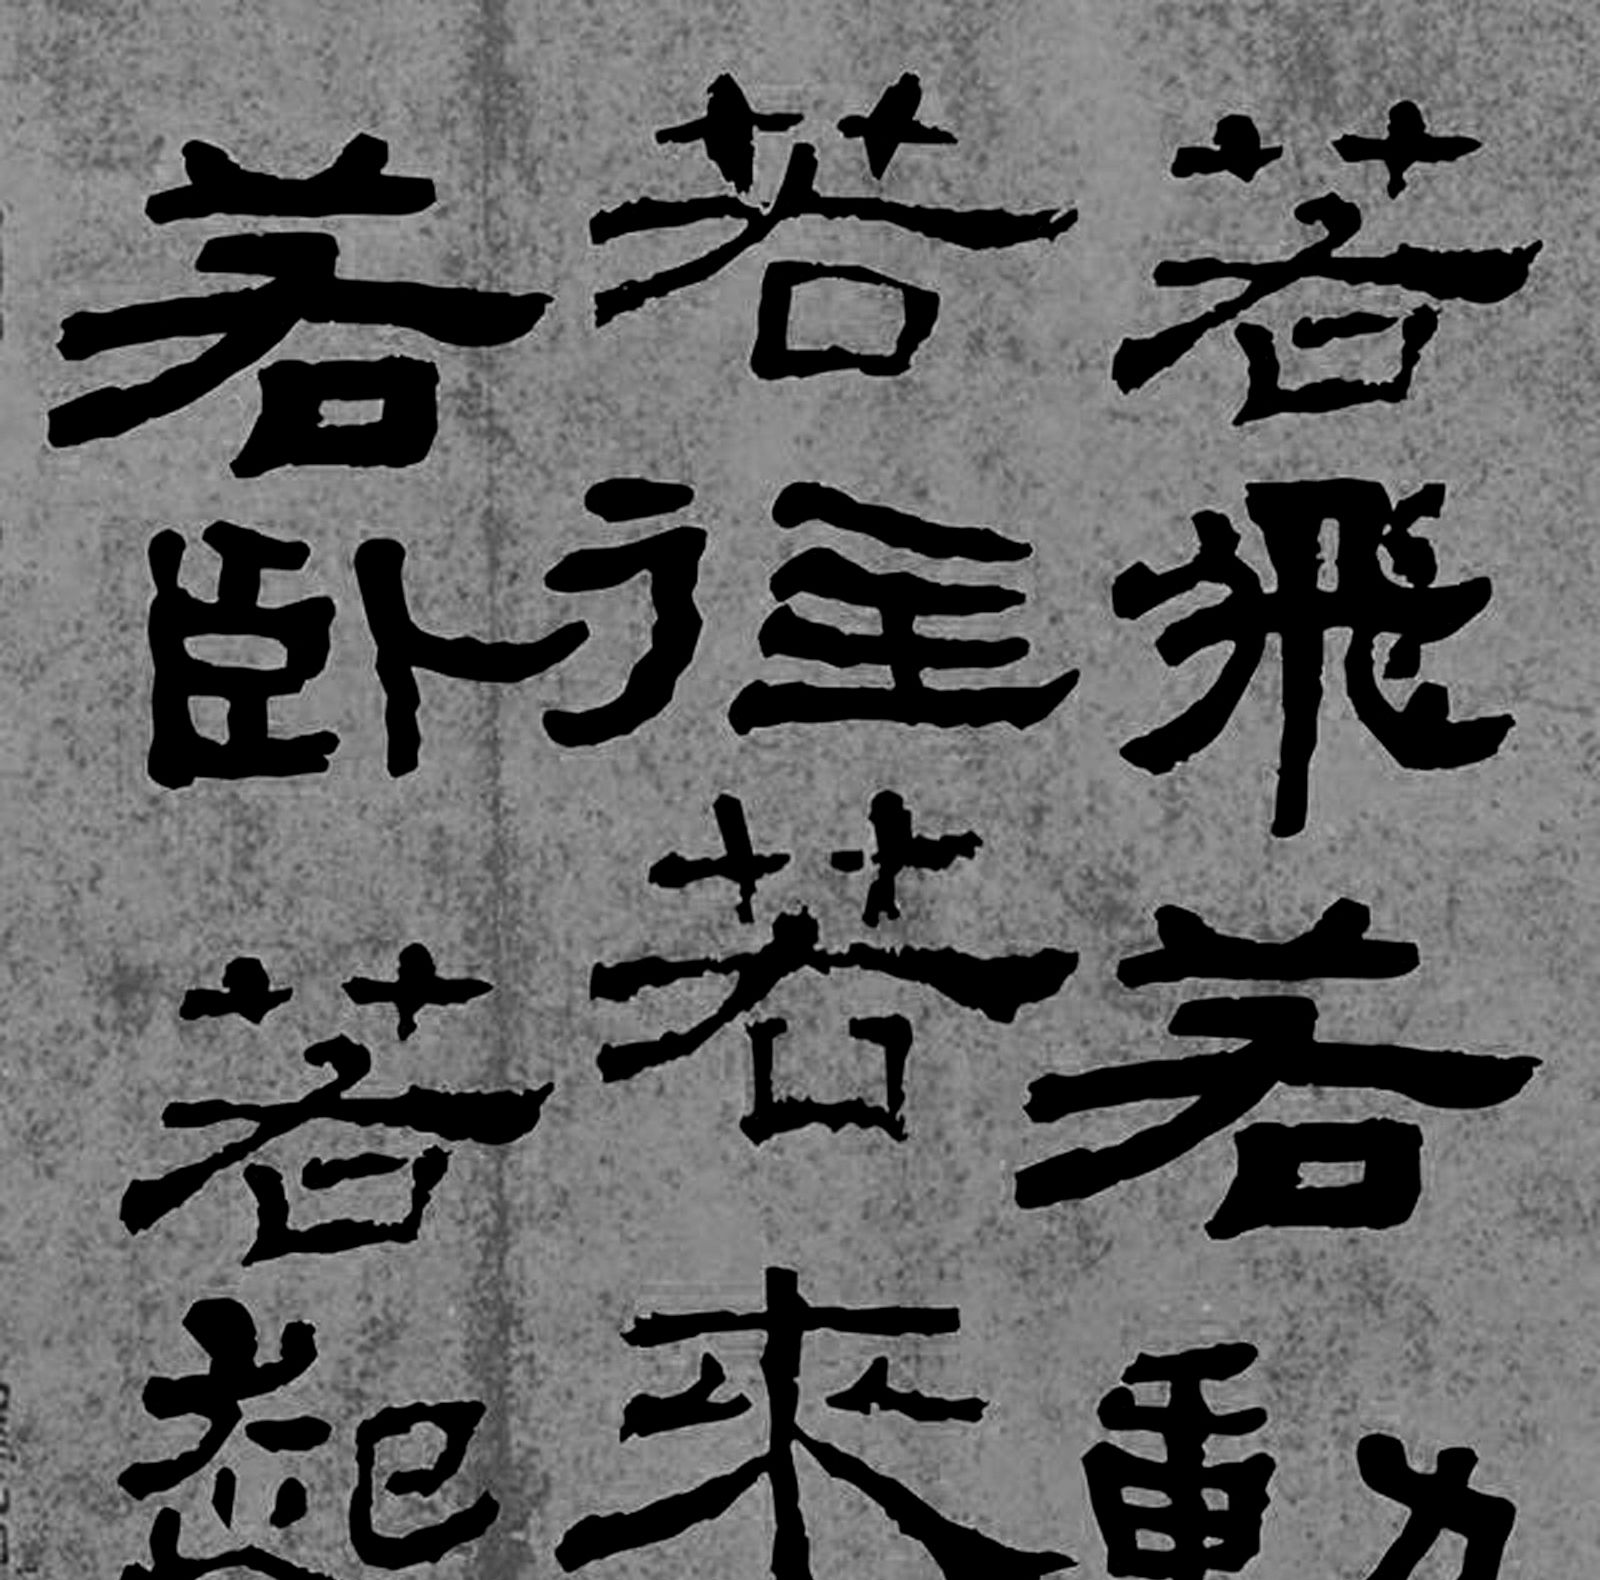 若飛若動
若往若來
若卧若起